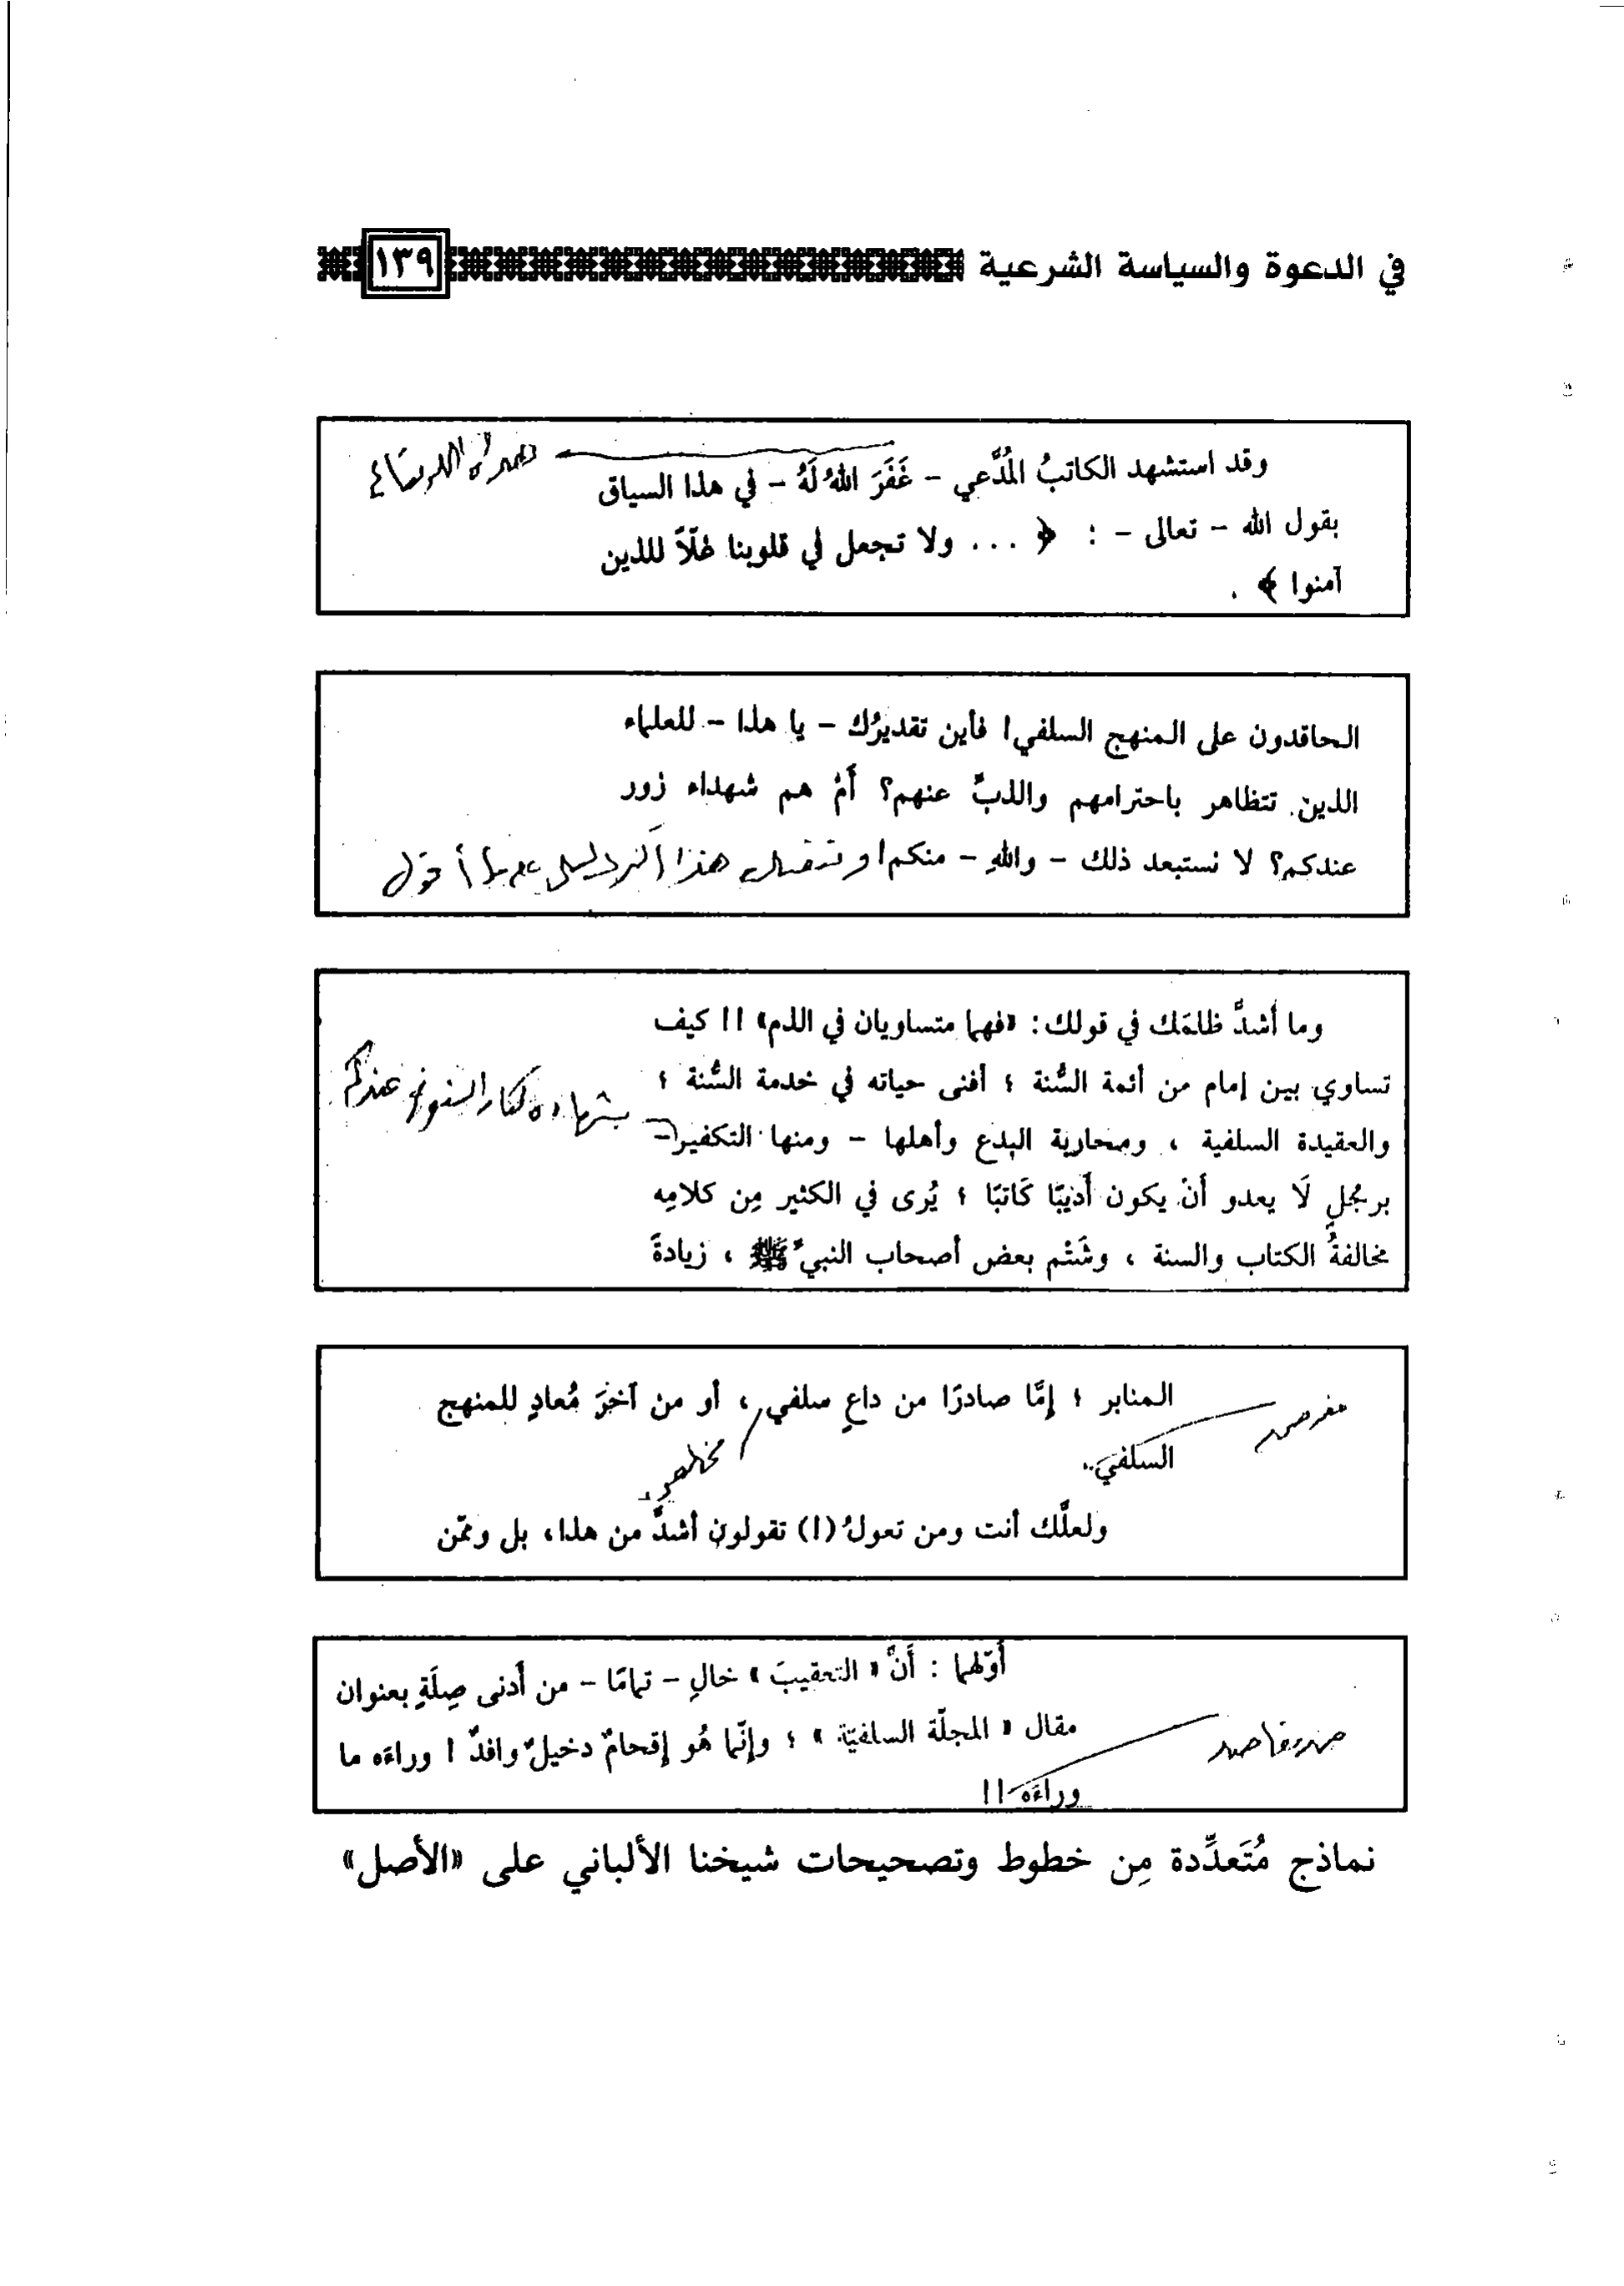 في الدعوة والسياسة الشرعية ١٣٩
وقد استشهد الكاتبُ المُدَّعي - غَفَرَ اللهُ لَهُ - في هذا السياق
بقول الله - تعالى - : ﴿ ... ولا تجعل في قلوبنا غلّاً للذين
آمنوا ﴾ .
الحاقدون على المنهج السلفي! فأين تقديرُك - يا هذا - للعلماء
الذين تتظاهر باحترامهم والذبِّ عنهم؟ أمْ هم شهداء زور
عندكم؟ لا نستبعد ذلك - واللهِ - منكم! هذا
وما أشدَّ ظلمَك في قولك: «فهما متساويان في الذم» !! كيف
تساوي بين إمام من أئمة السُّنة ؛ أفنى حياته في خدمة السُّنة ؛
والعقيدة السلفية ، ومحاربة البدع وأهلها - ومنها التكفير -
بشهادة كبار عندكم
برجُلٍ لَا يعدو أنْ يكون أديبًا كَاتبًا ؛ يُرى في الكثير مِن كلامِه
مخالفةُ الكتاب والسنة ، وشَتْم بعض أصحاب النبيِّ ﷺ ، زيادةً
المنابر ؛ إمَّا صادرًا من داعٍ سلفي ، أو من آخَرَ مُعادٍ للمنهج
مخلص
السلفي..
مغرض
ولعلَّك أنت ومن تعولُ (!) تقولون أشدَّ من هذا، بل وممّن
أوّلهما : أَنَّ « التعقيبَ » خالٍ - تمامًا - من أدنى صِلَةٍ بعنوان
مقال « المجلّة السلفيّة » ؛ وإنّما هُو إقحامٌ دخيلٌ وافدٌ ! وراءَه ما
وراءَه !!
نماذج مُتَعدِّدة مِن خطوط وتصحيحات شيخنا الألباني على «الأصل»